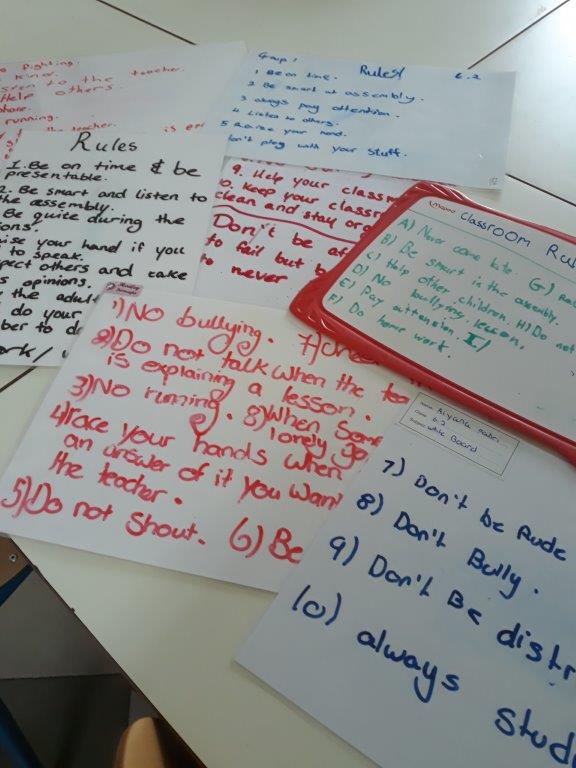 fighting.
kind.
to the teacher.
Help others.
running.
the teacher.
Group 1 Rules 6.2
1 Be on time.
2 Be smart at assembly.
3 always pay attention.
4 Listen to others.
5 Raise your hand.
play with your stuff.
Rules
1. Be on time & be
presentable.
2. Be smart and listen to
the assembly.
Be quite during the
your hand if you
to speak.
others and take
opinions.
the
do your
to
9. Help your
keep your
clean and stay
Don't be
to fail but
to never
Classroom
A) Never come late. G)
B) Be smart in the assembly.
C) Help other children. H) Do not
D) No bullying lesson.
E) Pay auttension. I)
F) Do home work.
1) No bullying. 7)
2) Do not talk when the
is explaining a lesson.
3) No running. 8) When
lonely go
4) race your hands when
an answer of it you want
the teacher.
5) Do not Shout. 6) Be
6.2
white Board
7) Don't be Rude
8) Don't Bully.
9) Don't Be
10) always